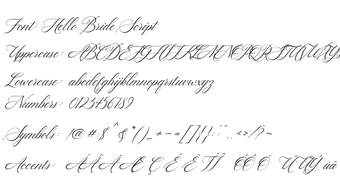 Font: Hello Bride Script
Uppercase: ABCDEFGHIJKLMNOPQRSTUVWXYZ
Lowercase: abcdefghijklmnopqrstuvwxyz
Numbers: 0123456789
Symbols: !@ # $ ^ & * ()_ + – = []{}
Accents: À Á Â Æ Ç È É